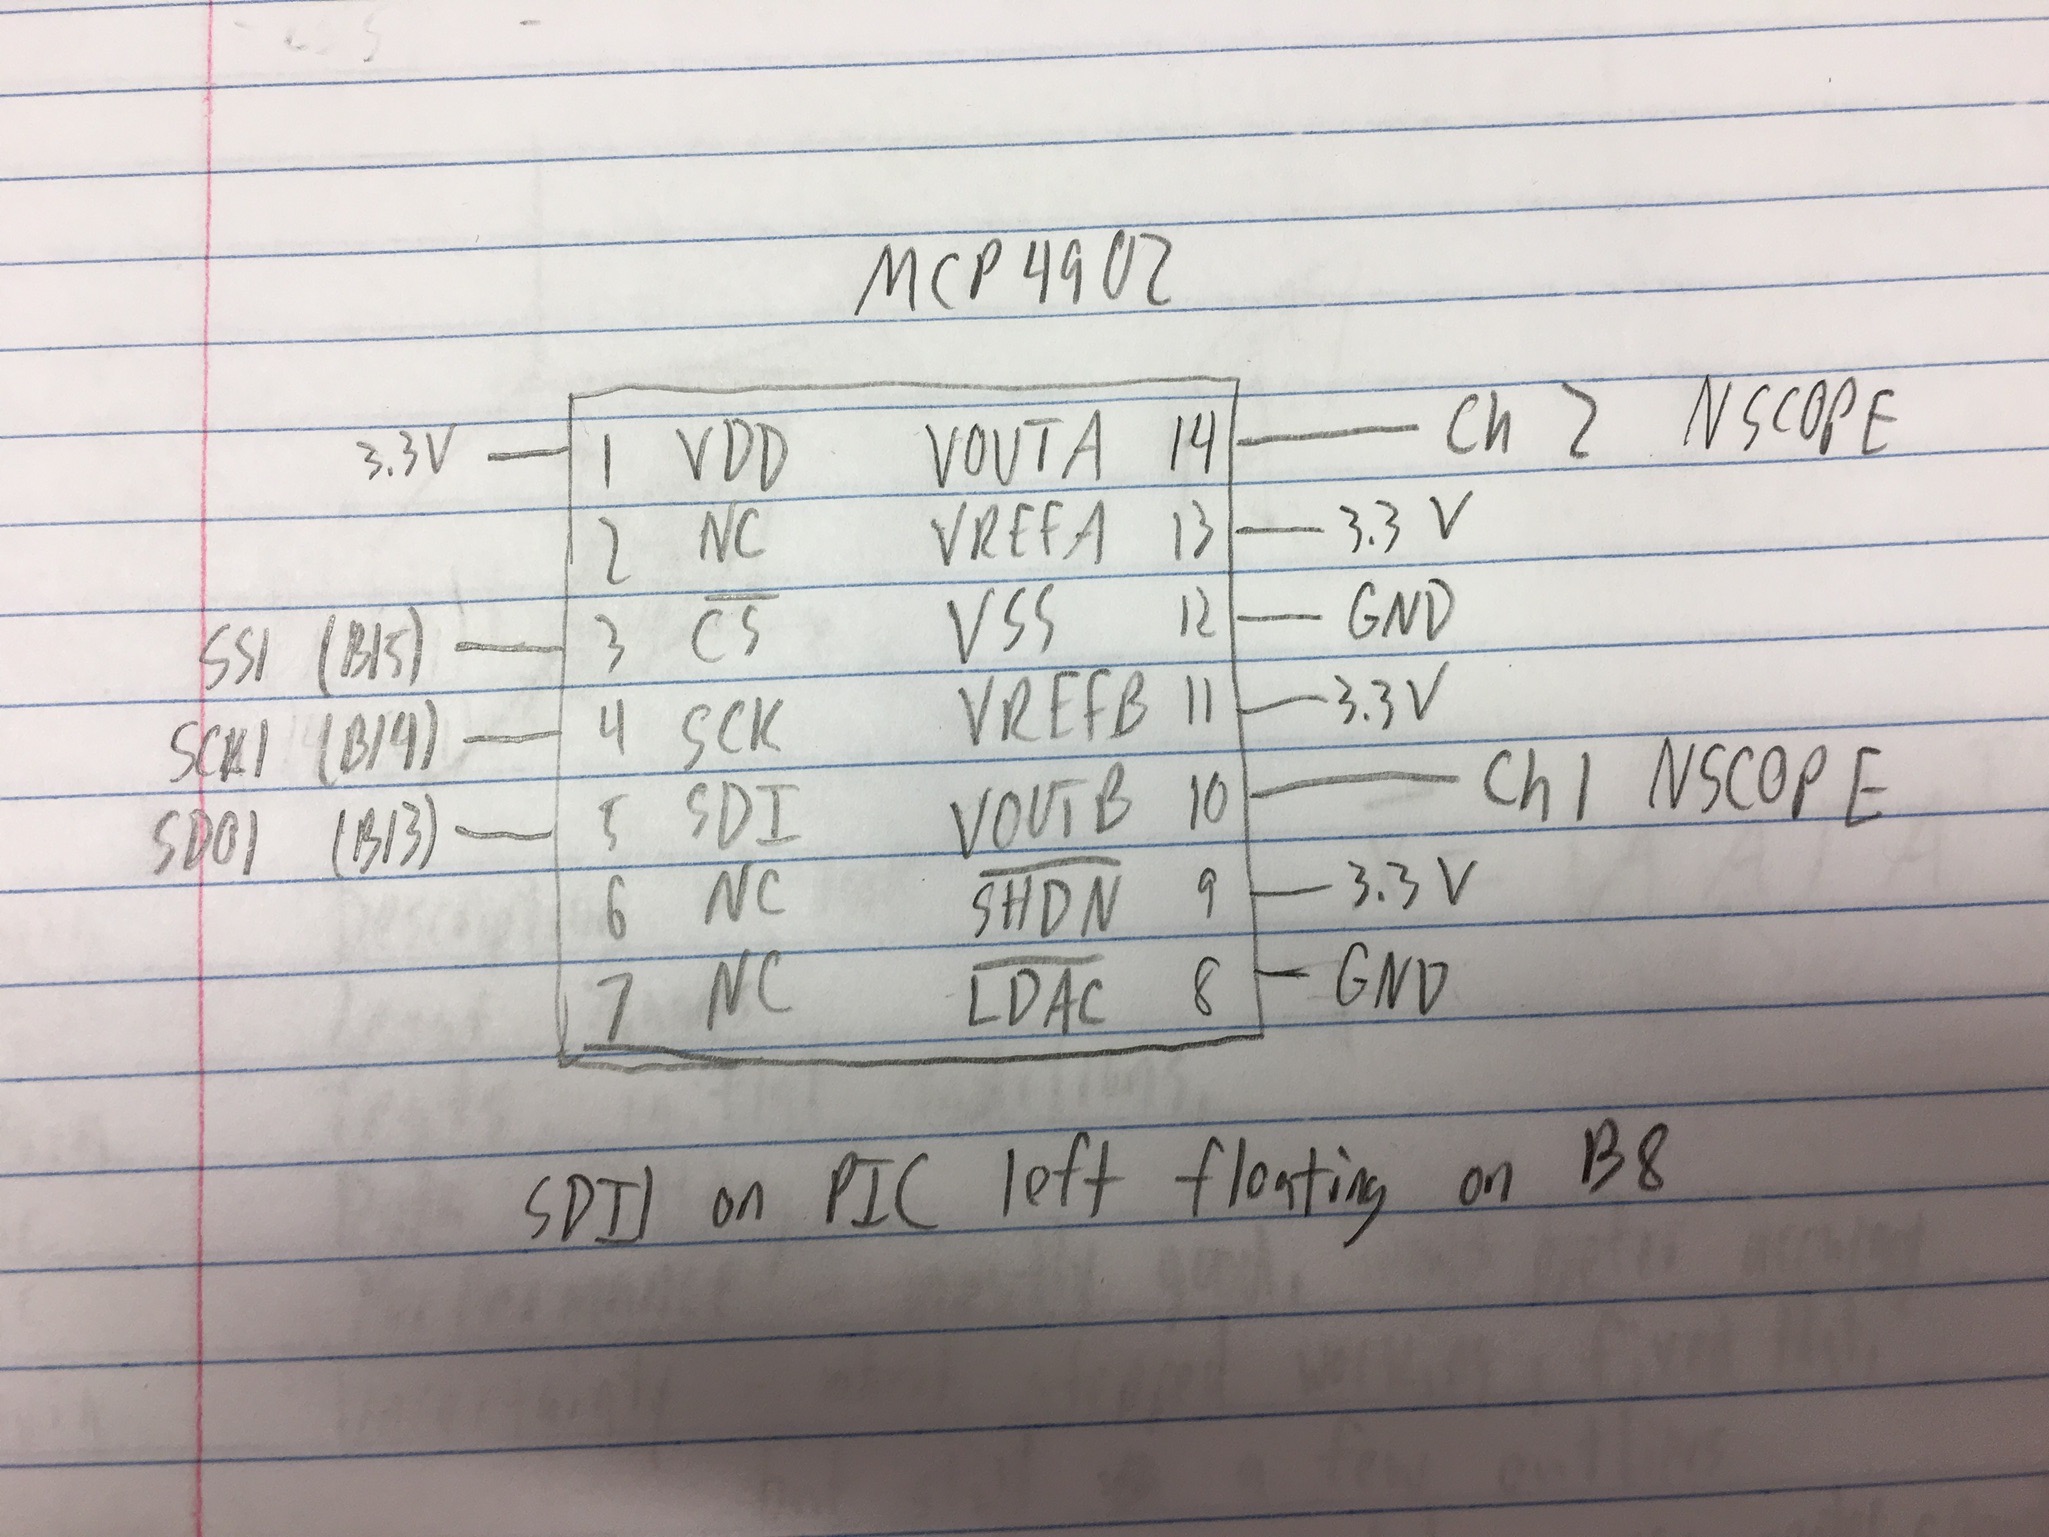 MCP4902
3.3V 1 VDD VOUTA 14 Ch 2 NSCOPE
2 NC VREFA 13 3.3 V
SS1 (B15) 3 CS VSS 12 GND
SCK1 (B14) 4 SCK VREFB 11 3.3V
SDO1 (B13) 5 SDI VOUTB 10 Ch 1 NSCOPE
6 NC SHDN 9 3.3 V
7 NC LDAC 8 GND
SDI1 on PIC left floating on B8